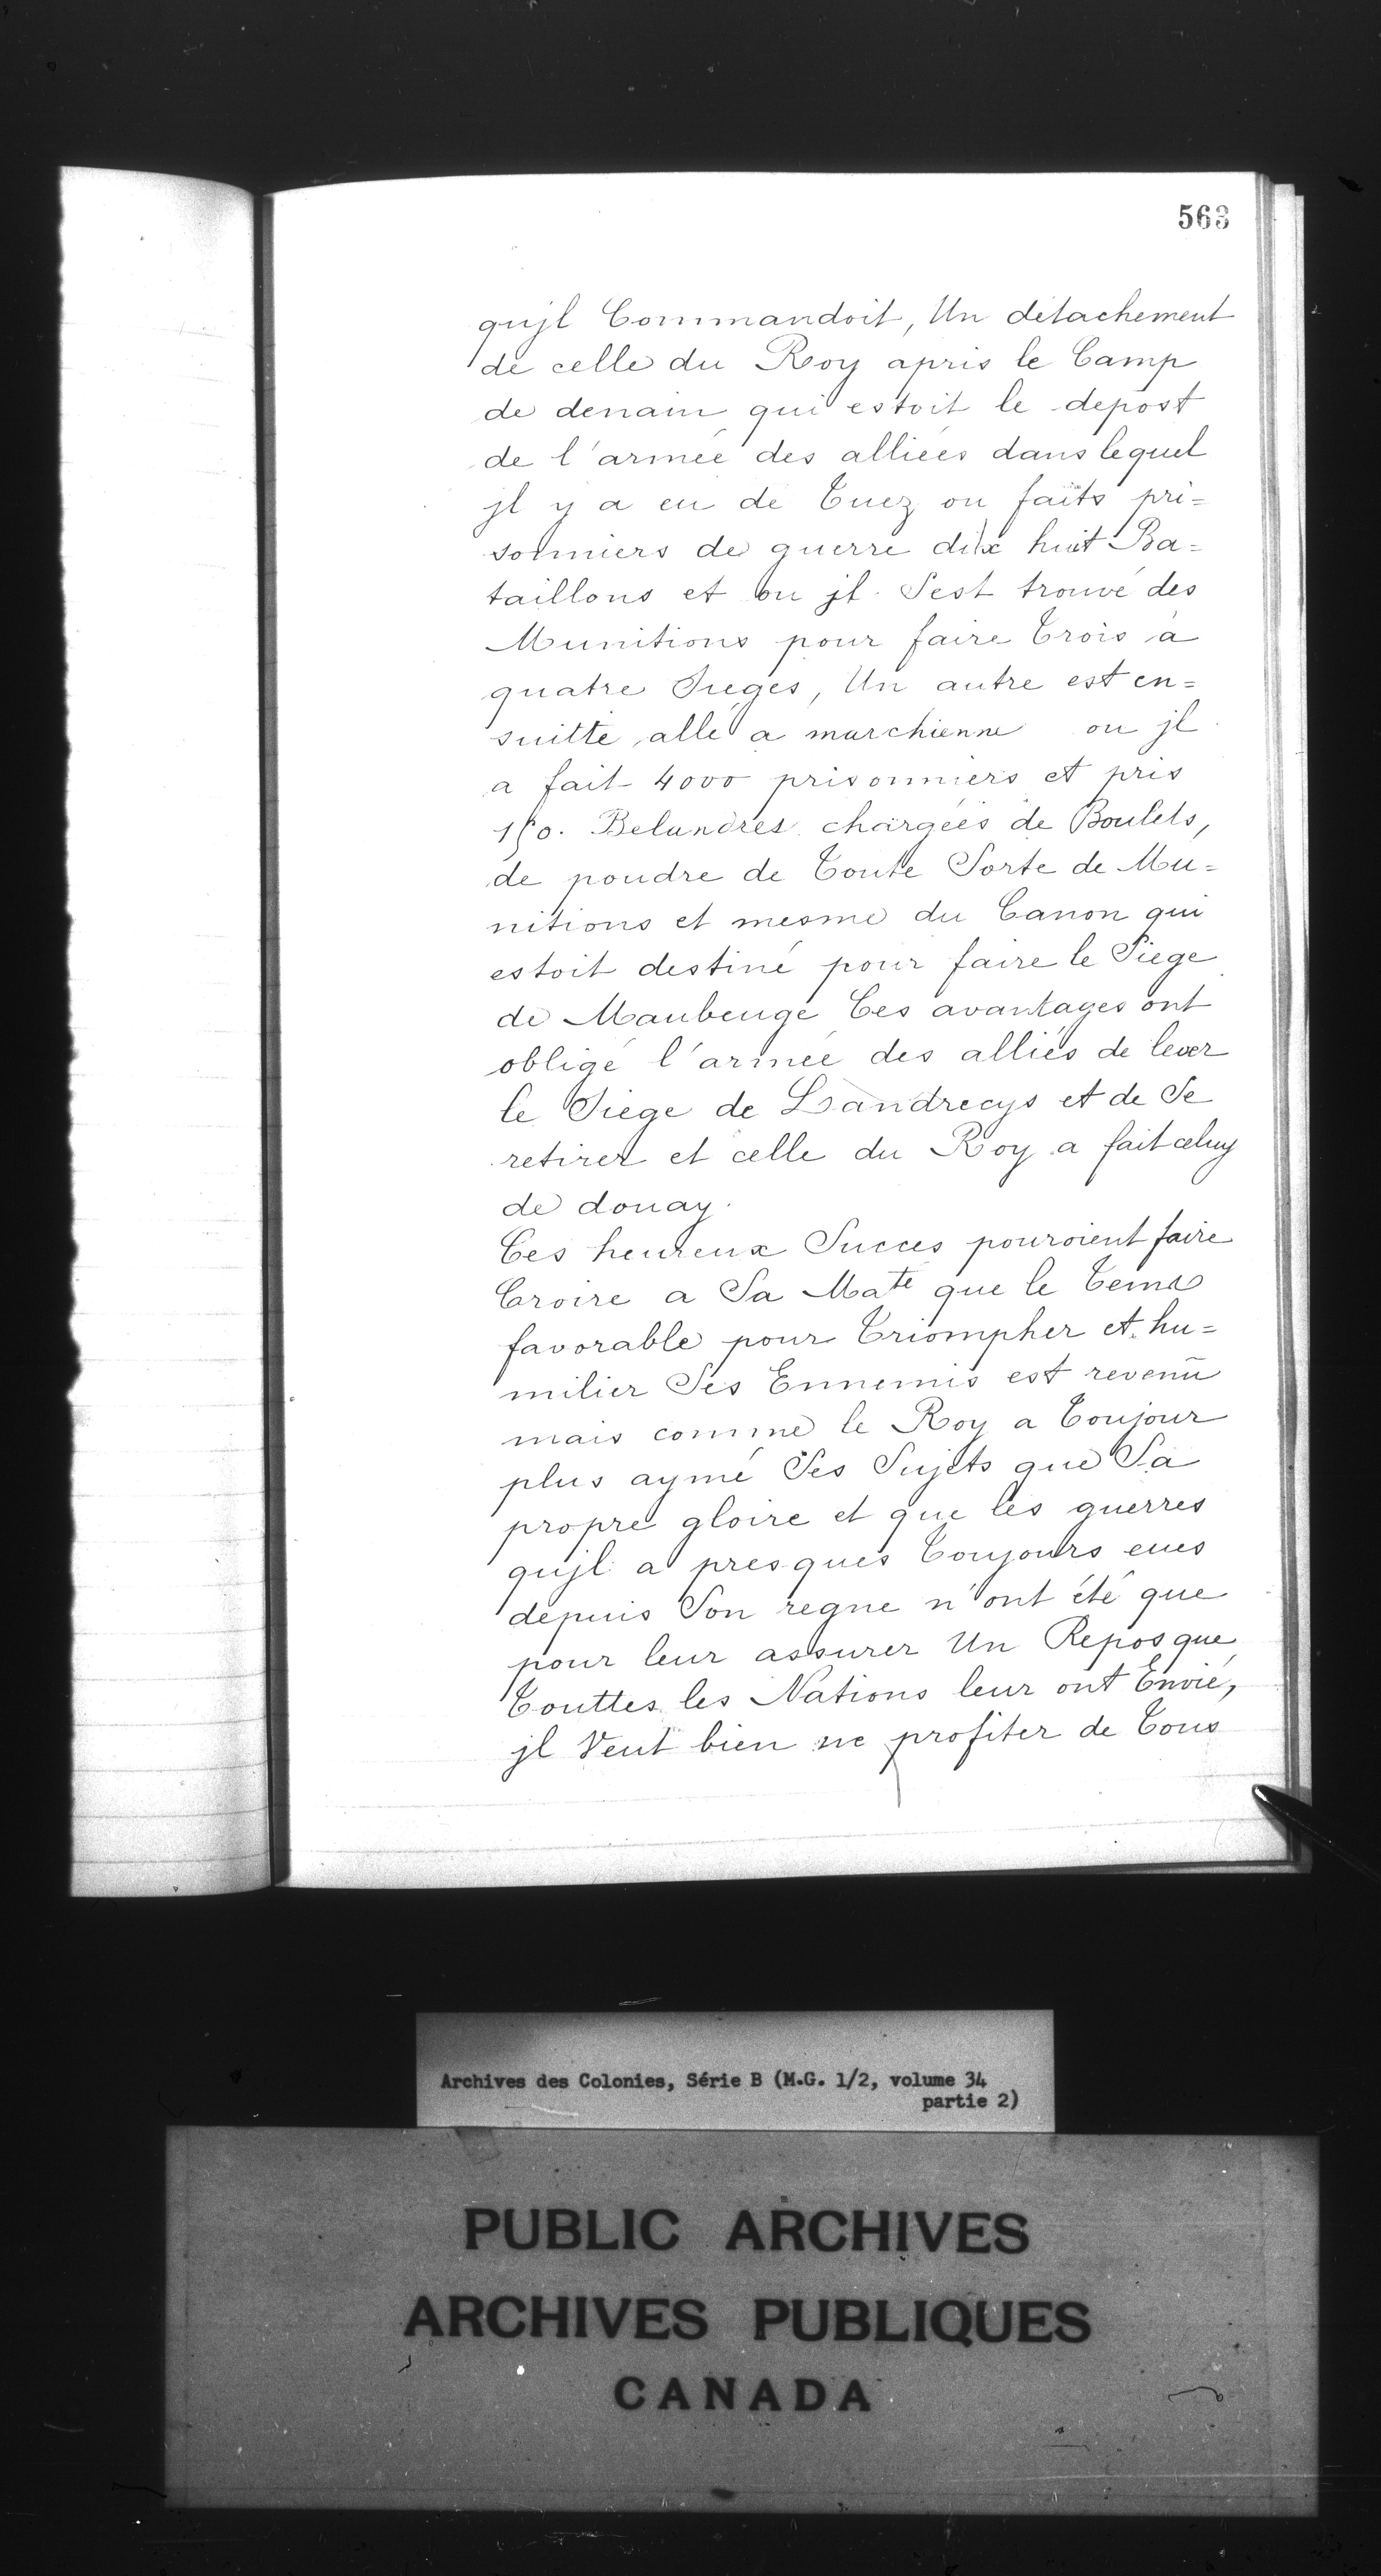 563
qujl Commandoit, Un détachement
de celle du Roy apris le Camp
de denain qui estoit le depost
de l'armée des alliées dans lequel
jl y a eu de Tuez ou faits pri=
sonniers de guerre dix huit Ba=
taillons et ou jl Sest trouvé des
Munitions pour faire Trois à
quatre Sieges, Un autre est en=
suitte allé a marchienne ou jl
a fait 4000 prisonniers et pris
150. Belandres chargées de Boulets,
de poudre de Toute Sorte de Mu=
nitions et mesme du Canon qui
estoit destiné pour faire le Siege
de Maubeuge Ces avantages ont
obligé l'armée des alliés de lever
le Siege de Landrecys et de Se
retirer et celle du Roy a fait celuy
de douay.
Ces heureux Succes pouroient faire
Croire a Sa Mate que le Tems
favorable pour Triompher et hu=
milier Ses Ennemis est revenu
mais comme le Roy a Toujour
plus aymé Ses Sujets que Sa
propre gloire et que les guerres
qujl a presques Toujours eues
depuis Son regne n'ont été que
pour leur assurer Un Repos que
Touttes les Nations leur ont Envié,
jl Veut bien ne profiter de Tous
Archives des Colonies, Série B (M.G. 1/2, volume 34
partie 2)
PUBLIC ARCHIVES
ARCHIVES PUBLIQUES
CANADA